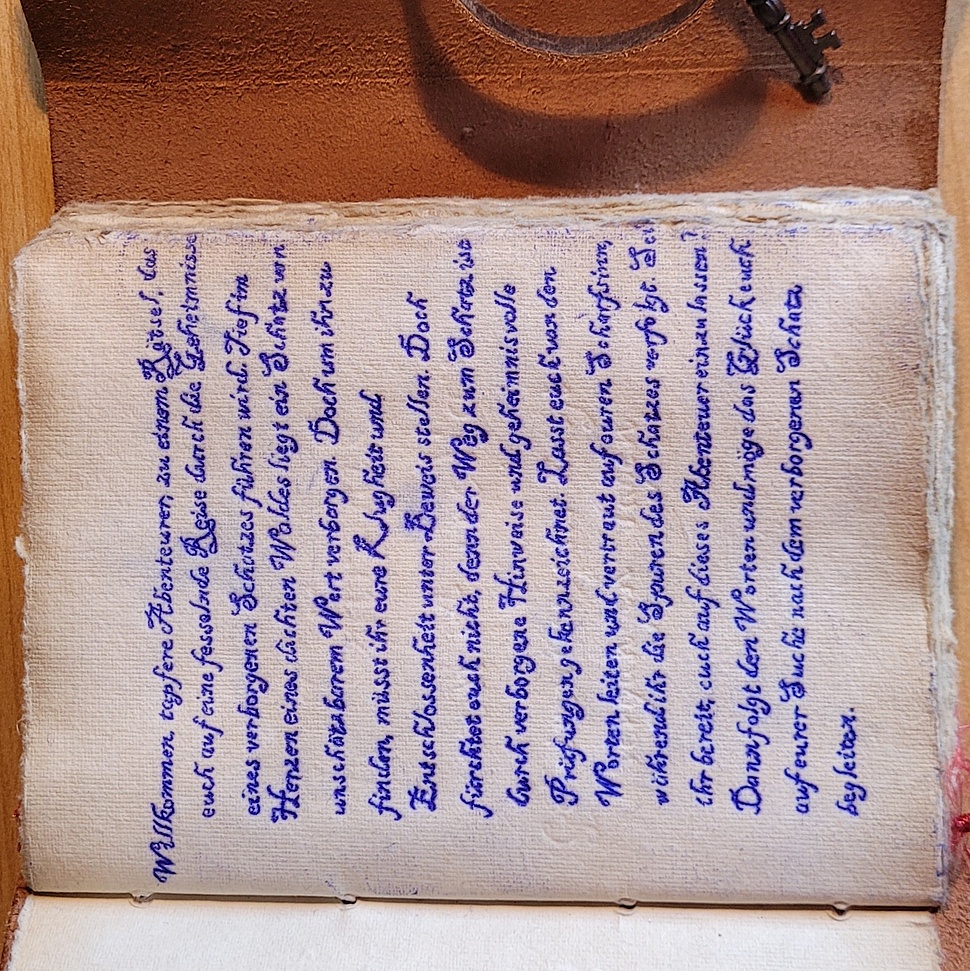 Willkommen, tapfere Abenteuren zu einem Rätsel, das
euch auf eine fesselnde Reise durch die Geheimnisse
eines verborgenen Schatzes führen wird. Tief im
Herzen eines dichten Waldes liegt ein Schatz von
unschätzbarem Wert verborgen. Doch um ihn zu
finden, müsst ihr eure Klugheit und
Entschlossenheit unter Beweis stellen. Doch
fürchtet euch nicht, denn der Weg zum Schatz ist
durch verborgene Hinweise und geheimnisvolle
Prüfungen gekennzeichnet. Lasst euch von den
Worten leiten und vertraut auf euren Scharfsinn,
während ihr die Spuren des Schatzes verfolgt. Sei
ihr bereit, euch auf dieses Abenteuer einzulassen?
Dann folgt den Worten und möge das Glück euch
auf eurer Suche nach dem verborgenen Schatz
begleiten.